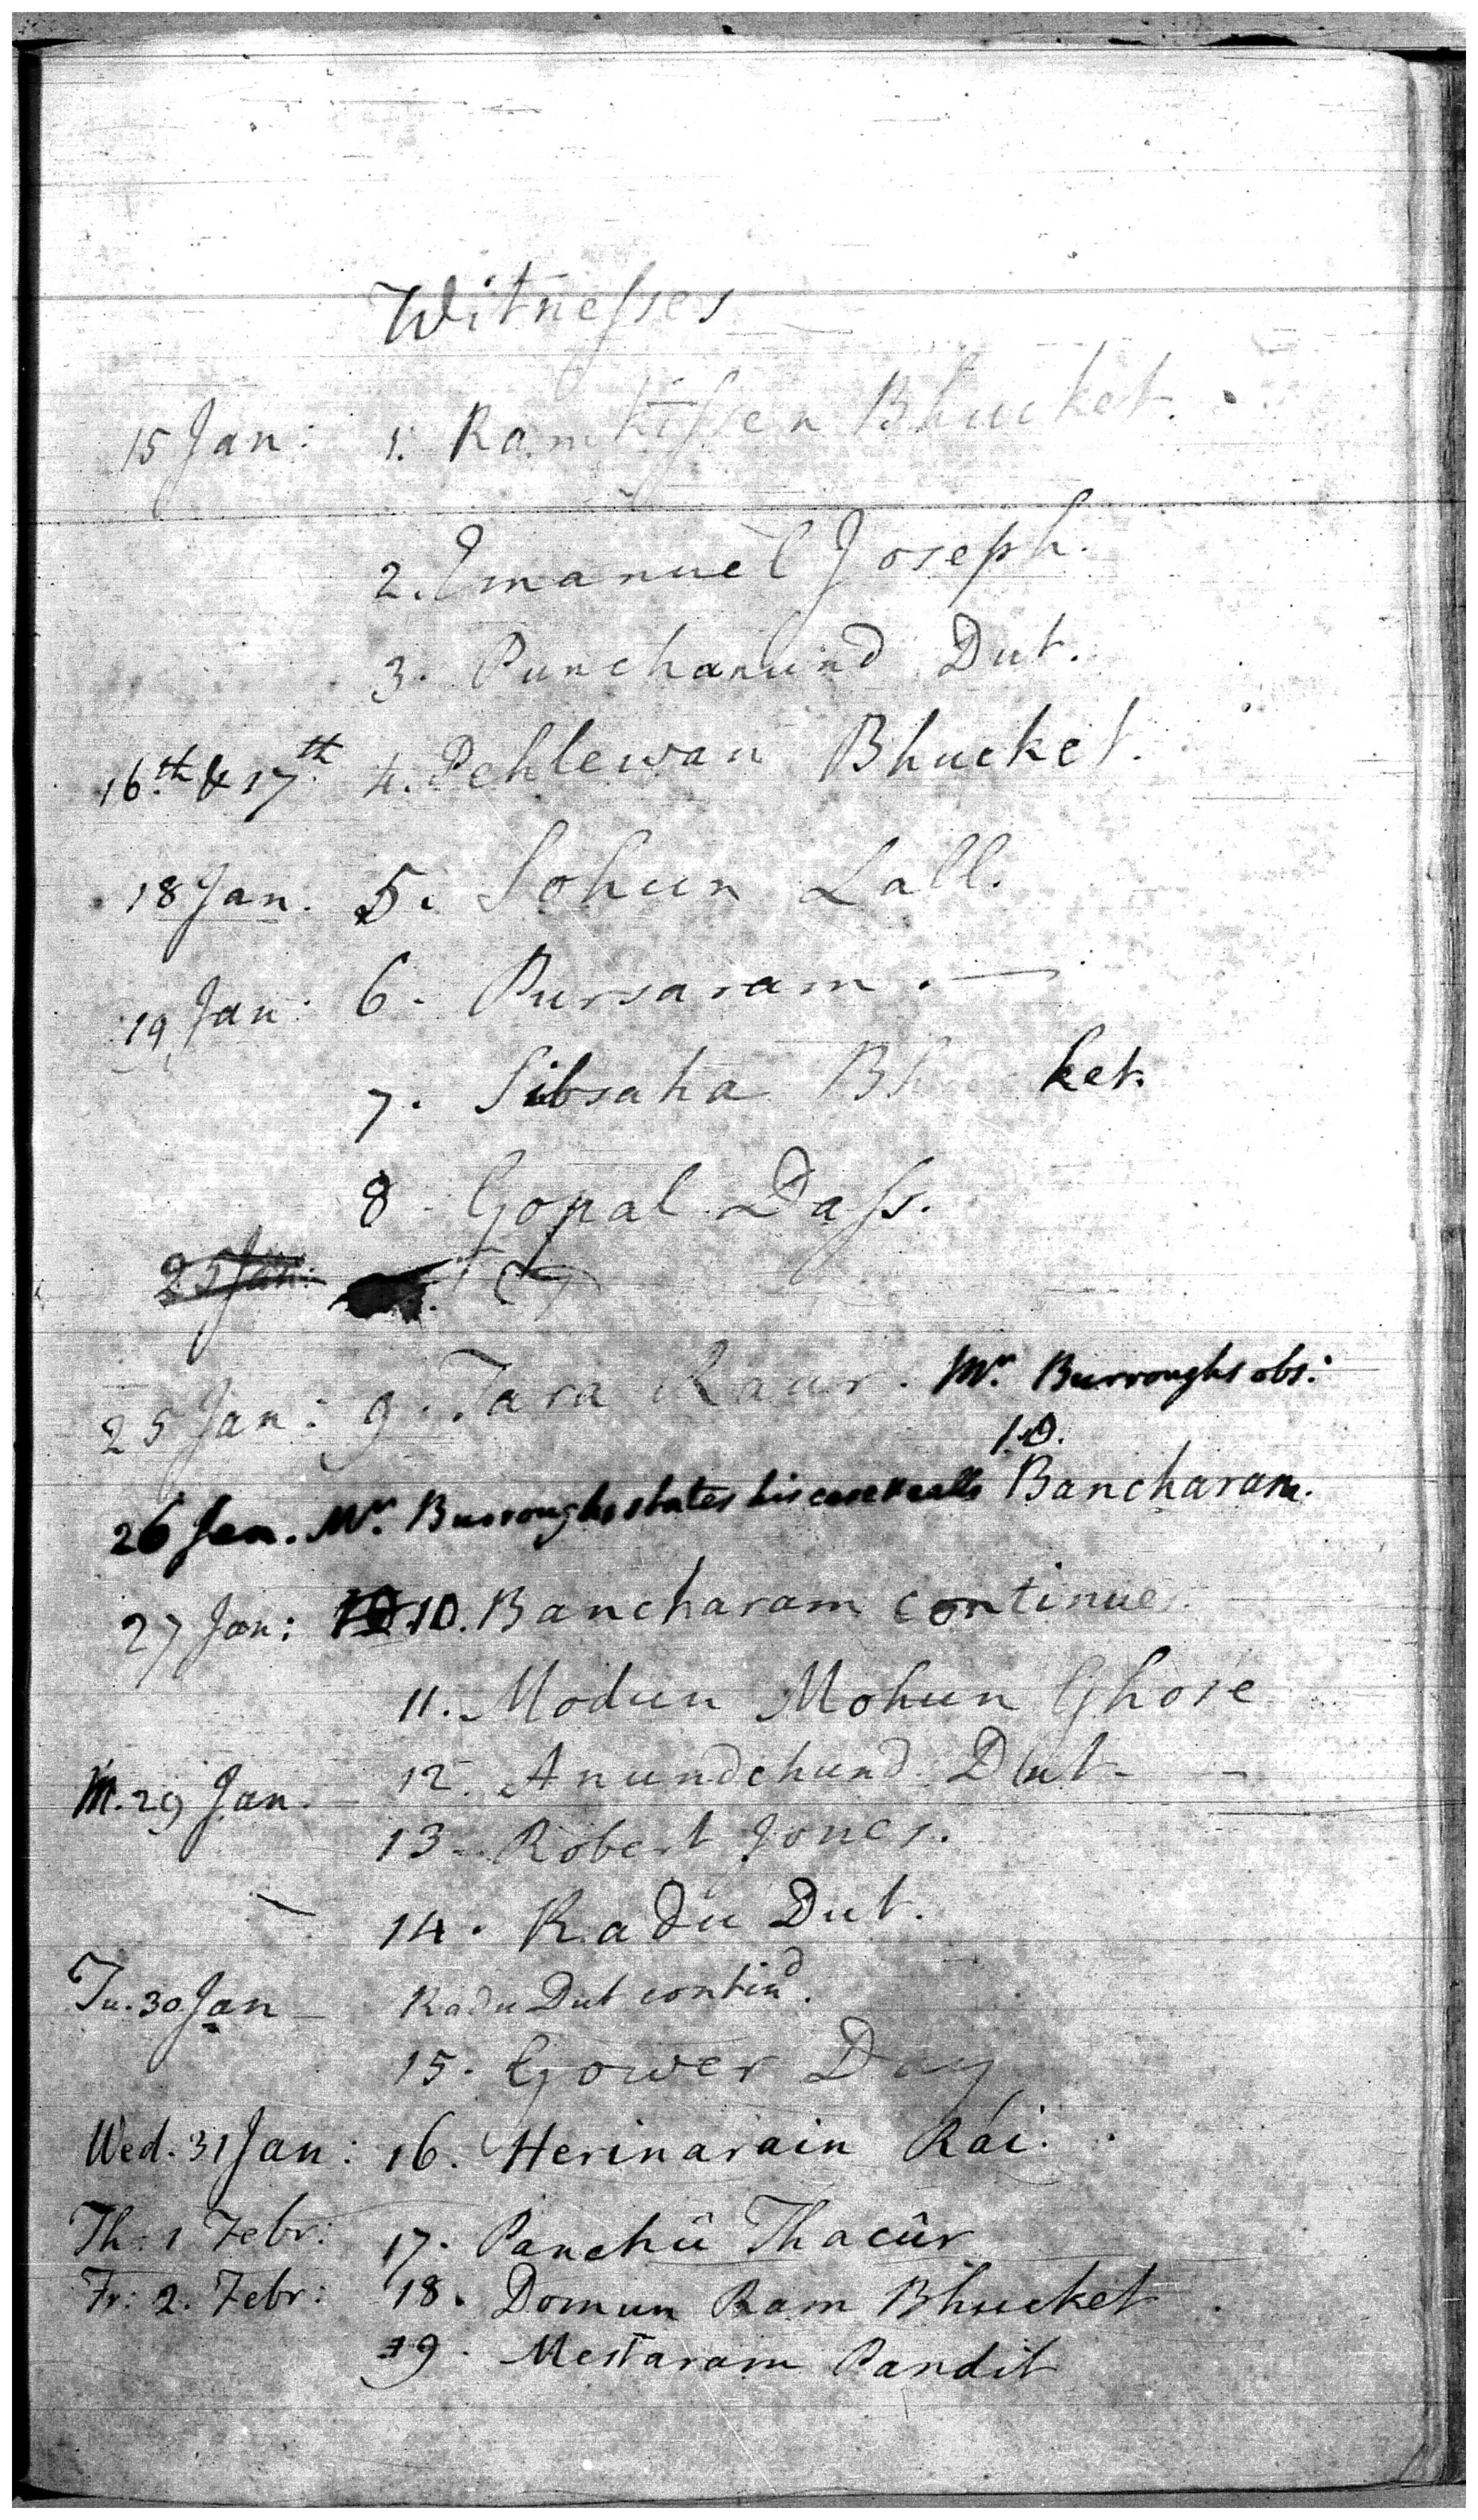 Witnesses
15 Jan: 1. Ramkissen Bhucket.
2. Emanuel Joseph.
3. Punchanund Dut.
16.th & 17.th 4. Pehlewan Bhucket.
18 Jan. 5. Sohun Lall.
19 Jan: 6. Pursaram.
7. Sibsaha Bhucket.
8. Gopal Dass.
25 Jan:
25 Jan: 9. Tara Kaur. Mr. Burroughs obs:
10.
26 Jan. Mr. Burroughs states his case & calls Bancharam.
27 Jan: 10. Bancharam continues.
11. Modun Mohun Ghose
M. 29 Jan. 12. Anundchund Dut-
13. Robert Jones.
14. Radu Dut.
Tu. 30 Jan Radu Dut contind.
15. Gower Day
Wed. 31 Jan: 16. Herinarain Rái.
Th: 1 Febr: 17. Panchû Thacûr
Fr: 2. Febr: 18. Domun Ram Bhucket
19. Mestaram Pandit